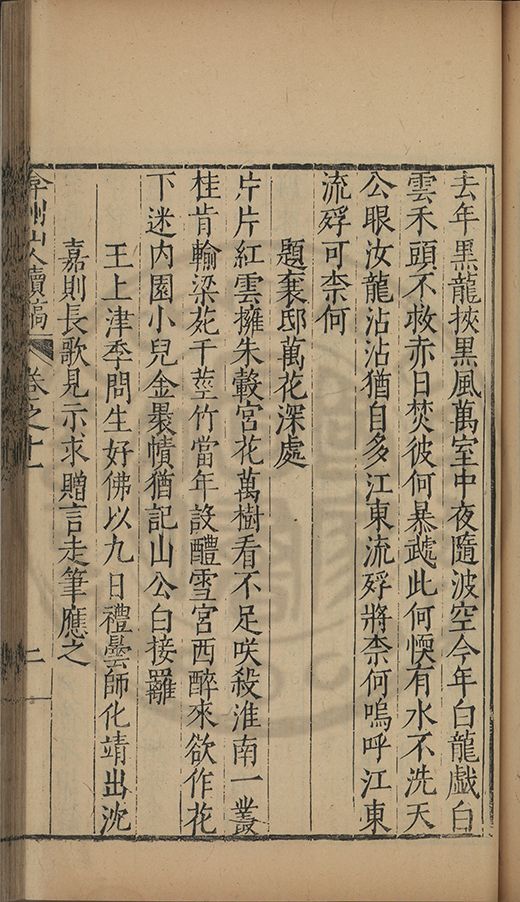 去年黑龍挾黑風萬室中夜隨波空今年白龍戲白
雲禾頭不救赤日焚彼何暴虣此何愞有水不洗天
公眼汝龍沾沾猶自多江東流殍將柰何嗚呼江東
流殍可柰何
題袁邸萬花深處
片片紅雲擁朱轂宮花萬樹看不足咲殺淮南一叢
桂肯輸梁苑千莖竹當年設醴雪宮西醉來欲作花
下迷内園小兒金㡌幘猶記山公白接䍦
王上津季問生好佛以九日禮曇師化靖出沈
嘉則長歌見示求贈言走筆應之
弇州山人續稿 卷之十一 二